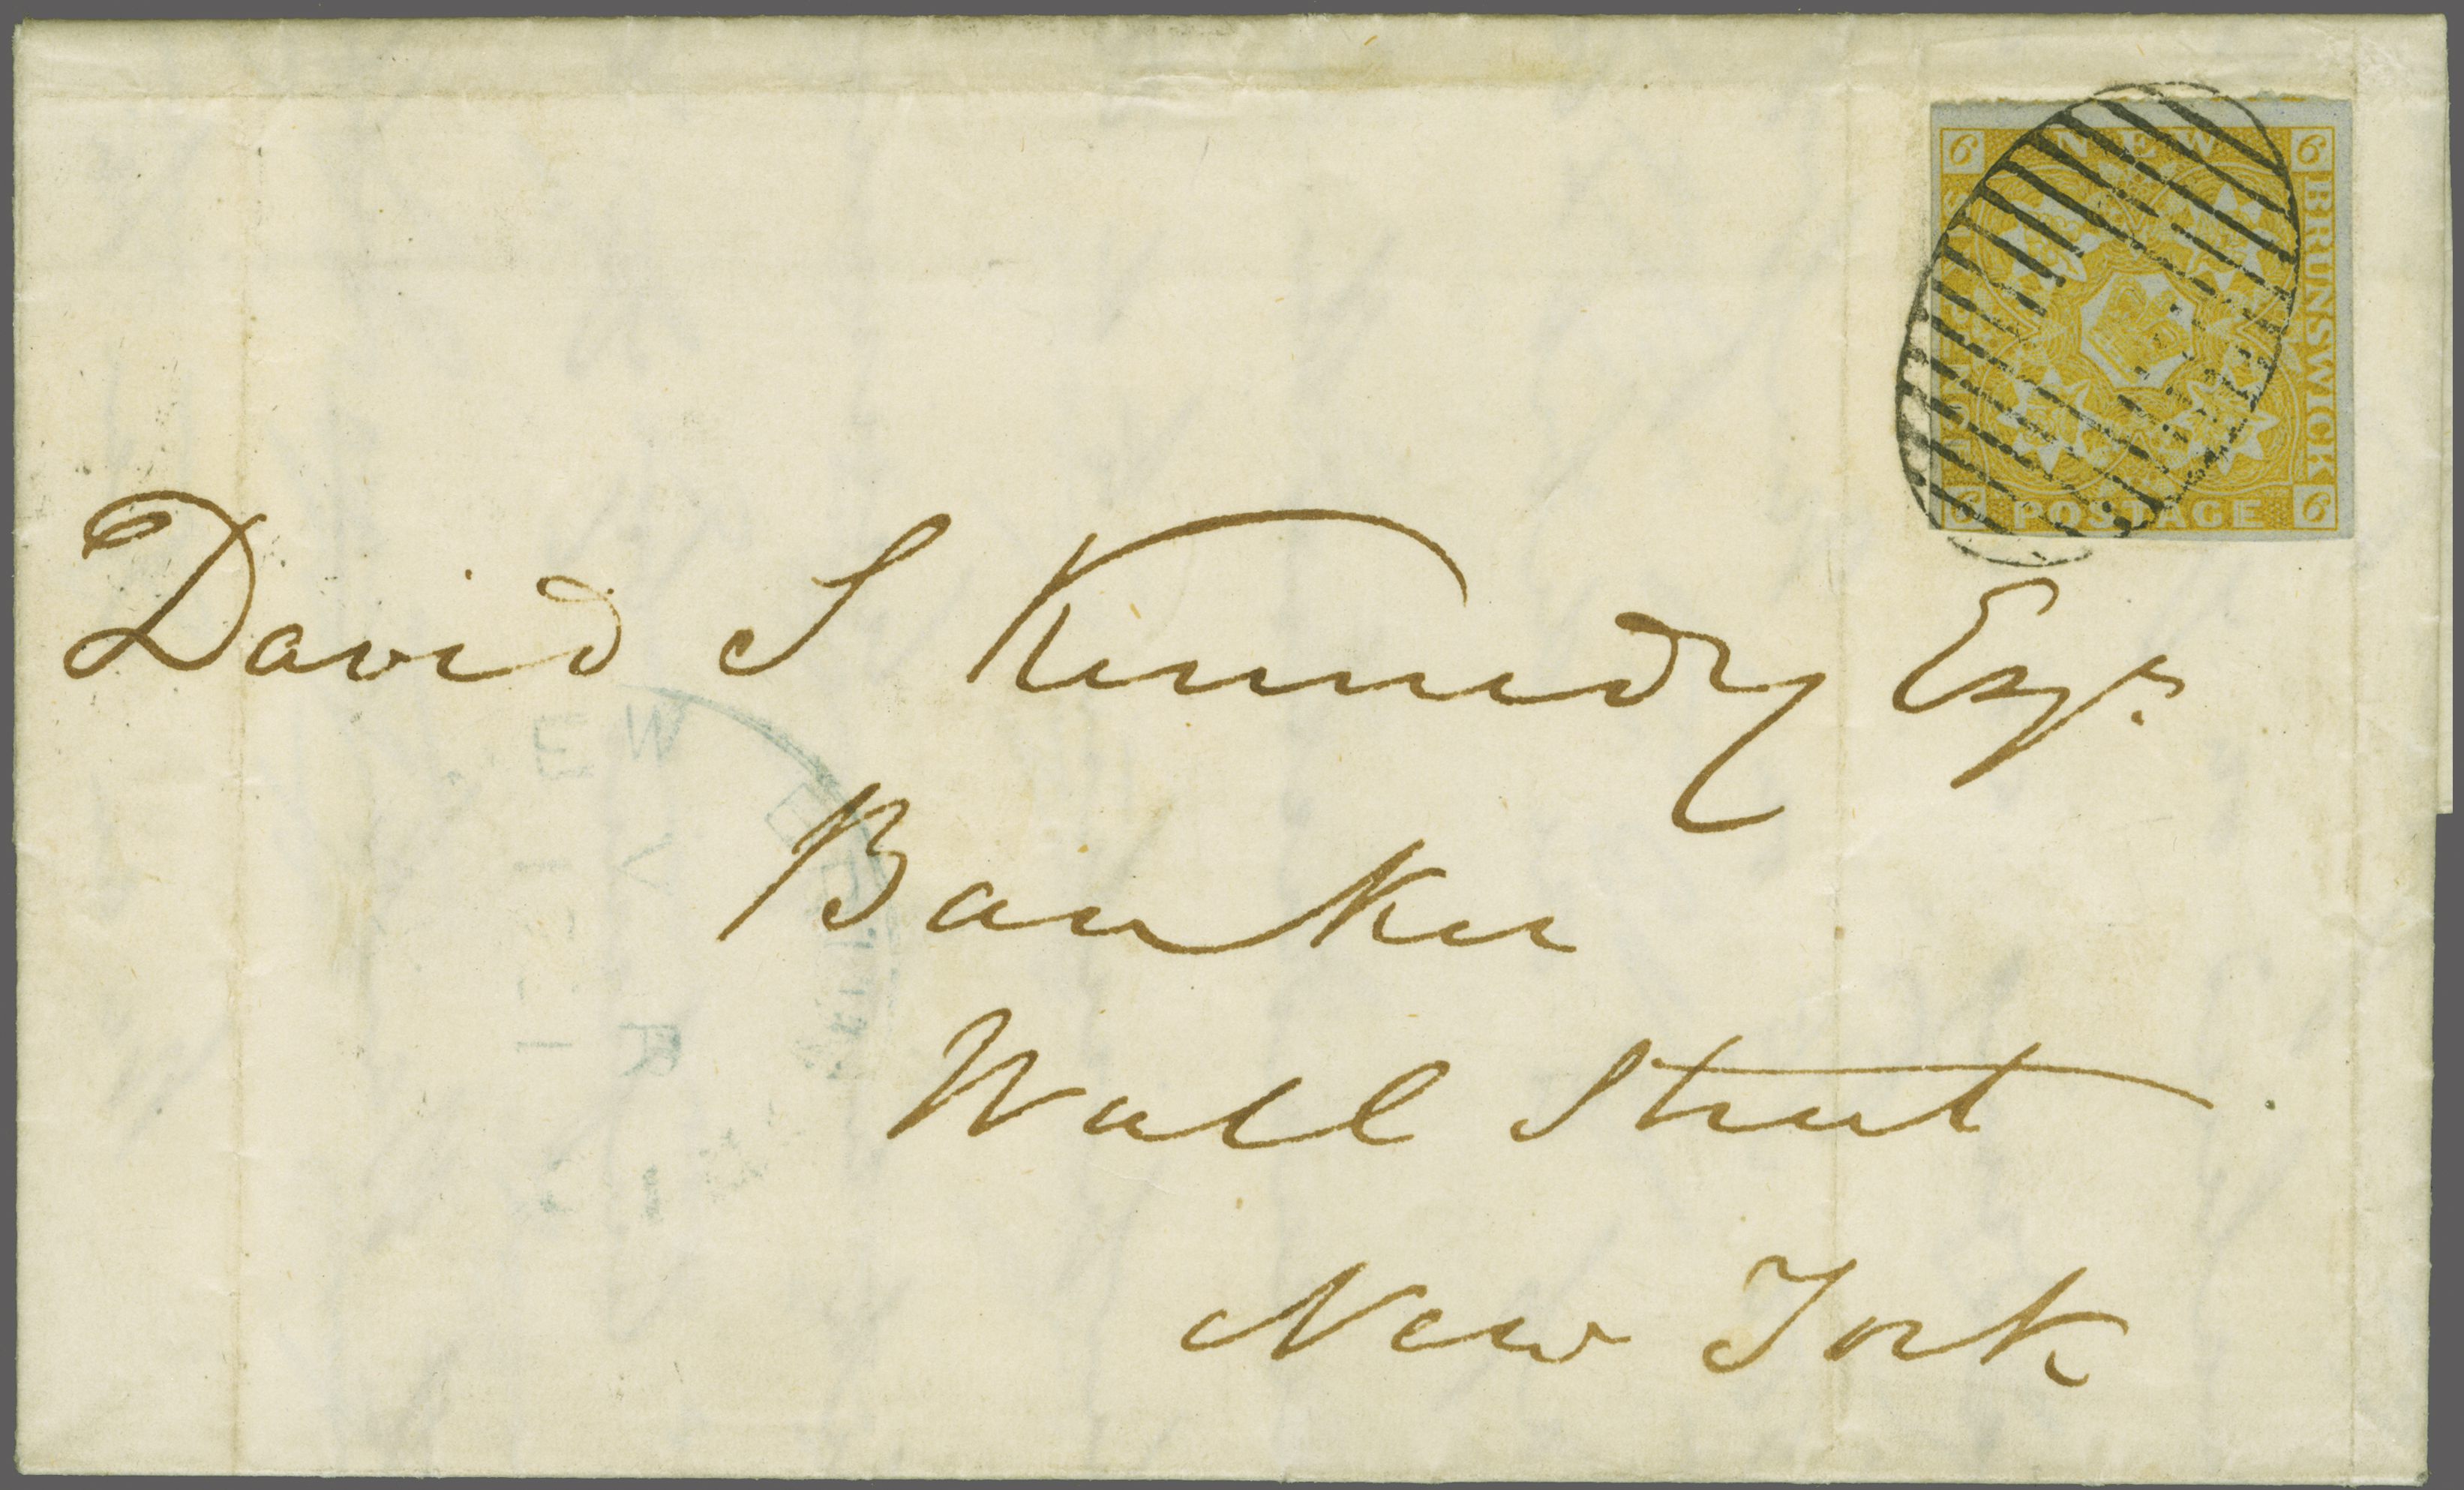 6 NEW 6
BRUNSWICK
6 POSTAGE 6
David S Kennedy Esqr.
Banker
Wall Street
New York